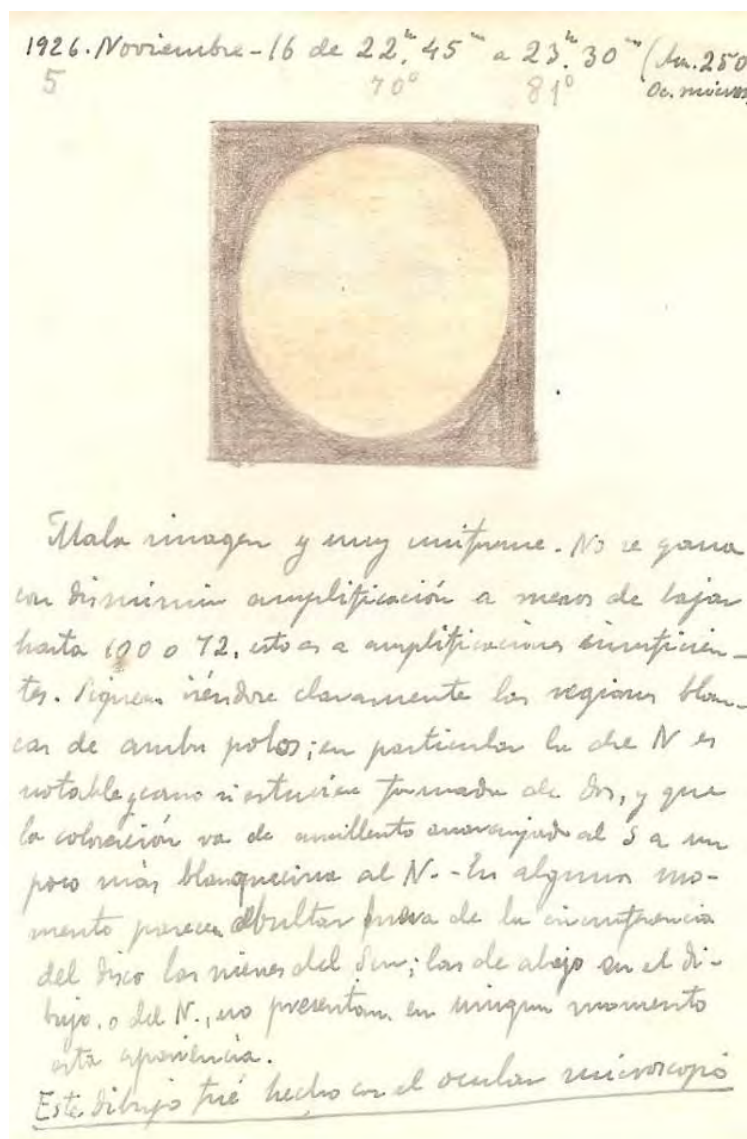 1926. Noviembre - 16 de 22.h 45m a 23.h 30m (Am. 250
5 70° 81° Oc. micros
Mala imagen y muy uniforme. No se gana
con disminuir amplificación a menos de bajar
hasta 100 o 72, esto es a amplificaciones insuficien-
tes. Siguen viéndose claramente las regiones blan-
cas de ambos polos; en particular la de N es
notable y como si estuviera formada de dos, y que
la coloración va de amarillento anaranjado al S a un
poco más blanquecina al N. - En algunos mo-
mento parecen abultar fuera de la circunferencia
del disco las nieves del Sur; las de abajo en el di-
bujo, o del N., no presentan en ningun momento
esta apariencia.
Este dibujo fué hecho con el ocular microscopio